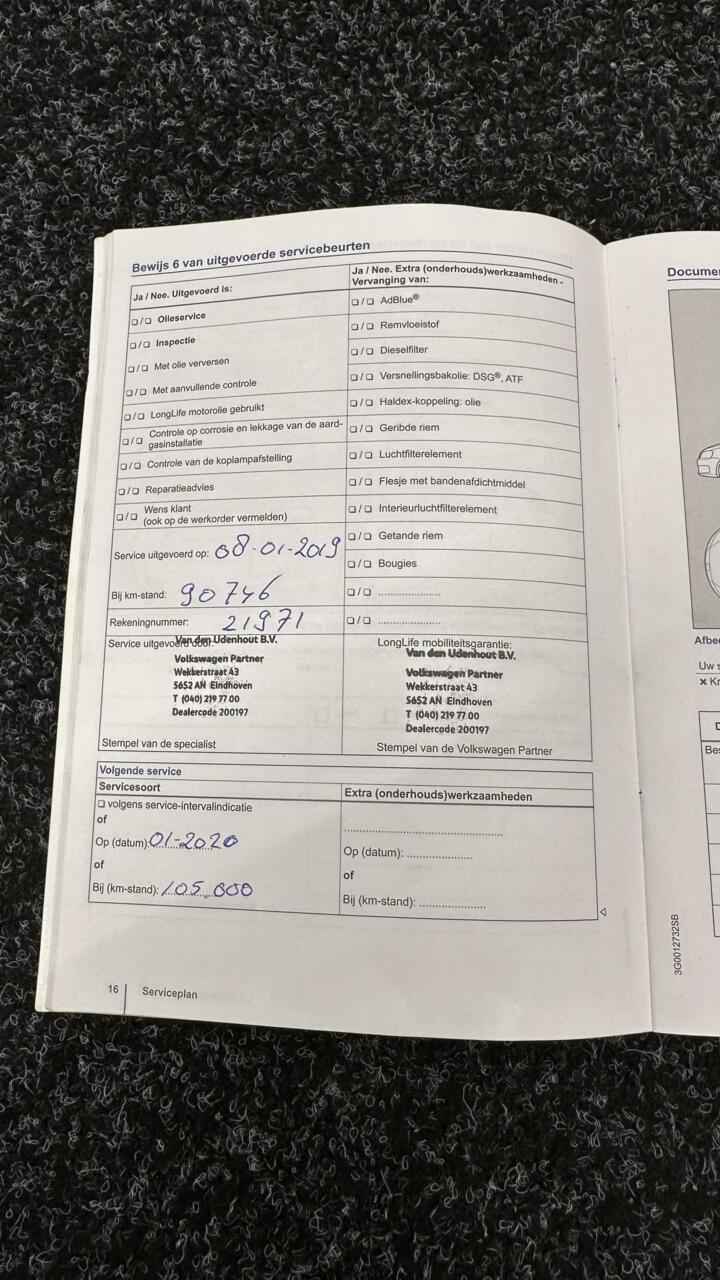 Bewijs 6 van uitgevoerde servicebeurten
Ja / Nee. Uitgevoerd is:
❑ / ❑ Olieservice
❑ / ❑ Inspectie
❑ / ❑ Met olie verversen
❑ / ❑ Met aanvullende controle
❑ / ❑ LongLife motorolie gebruikt
❑ / ❑ Controle op corrosie en lekkage van de aard-
gasinstallatie
❑ / ❑ Controle van de koplampafstelling
❑ / ❑ Reparatieadvies
❑ / ❑ Wens klant
(ook op de werkorder vermelden)
Service uitgevoerd op: 08-01-2019
Bij km-stand: 90746
Rekeningnummer: 21971
Ja / Nee. Extra (onderhouds)werkzaamheden -
Vervanging van:
❑ / ❑ AdBlue®
❑ / ❑ Remvloeistof
❑ / ❑ Dieselfilter
❑ / ❑ Versnellingsbakolie: DSG®, ATF
❑ / ❑ Haldex-koppeling: olie
❑ / ❑ Geribde riem
❑ / ❑ Luchtfilterelement
❑ / ❑ Flesje met bandenafdichtmiddel
❑ / ❑ Interieurluchtfilterelement
❑ / ❑ Getande riem
❑ / ❑ Bougies
❑ / ❑ .....................
❑ / ❑ .....................
Service uitgevoerd door:
Van den Udenhout B.V.
Volkswagen Partner
Wekkerstraat 43
5652 AN Eindhoven
T (040) 219 77 00
Dealercode 200197
Stempel van de specialist
LongLife mobiliteitsgarantie:
Van den Udenhout B.V.
Volkswagen Partner
Wekkerstraat 43
5652 AN Eindhoven
T (040) 219 77 00
Dealercode 200197
Stempel van de Volkswagen Partner
Volgende service
Servicesoort
❑ volgens service-intervalindicatie
of
Op (datum): 01-2020
of
Bij (km-stand): 105.000
Extra (onderhouds)werkzaamheden
Op (datum): .....................
of
Bij (km-stand): .....................
16 Serviceplan
3G0012732SB